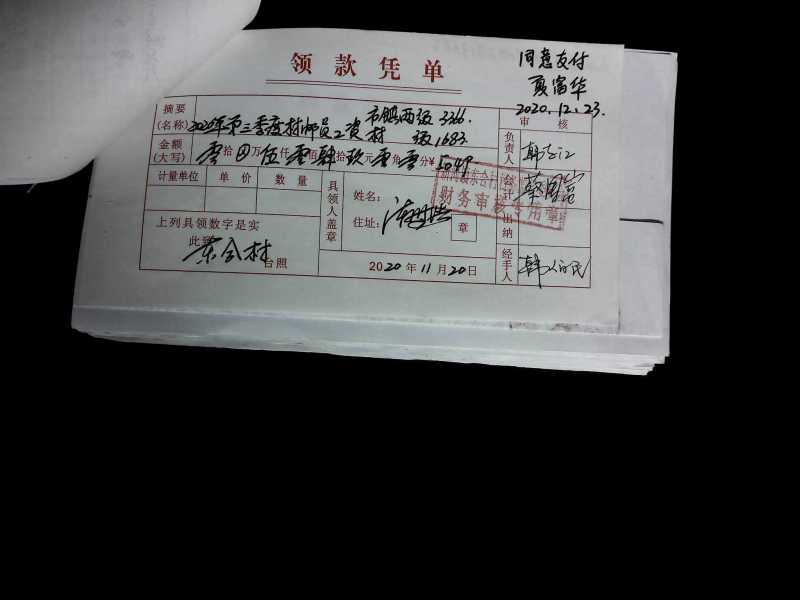 领款凭单
同意支付
夏富华
2020.12.23.
摘要
(名称)
2020年第三季度村邮员工资
市镇两级 3366.
村级1683.
审核
金额
(大写)
零拾 万伍仟零佰肆拾玖元零角零分¥5049
负责人
计量单位 单价 数量
具领人盖章
姓名:
住址:
章
会计
蔡国富
财务审核专用章
出纳
上列具领数字是实
此致
东合村 台照
2020年11月20日
经手人
韩